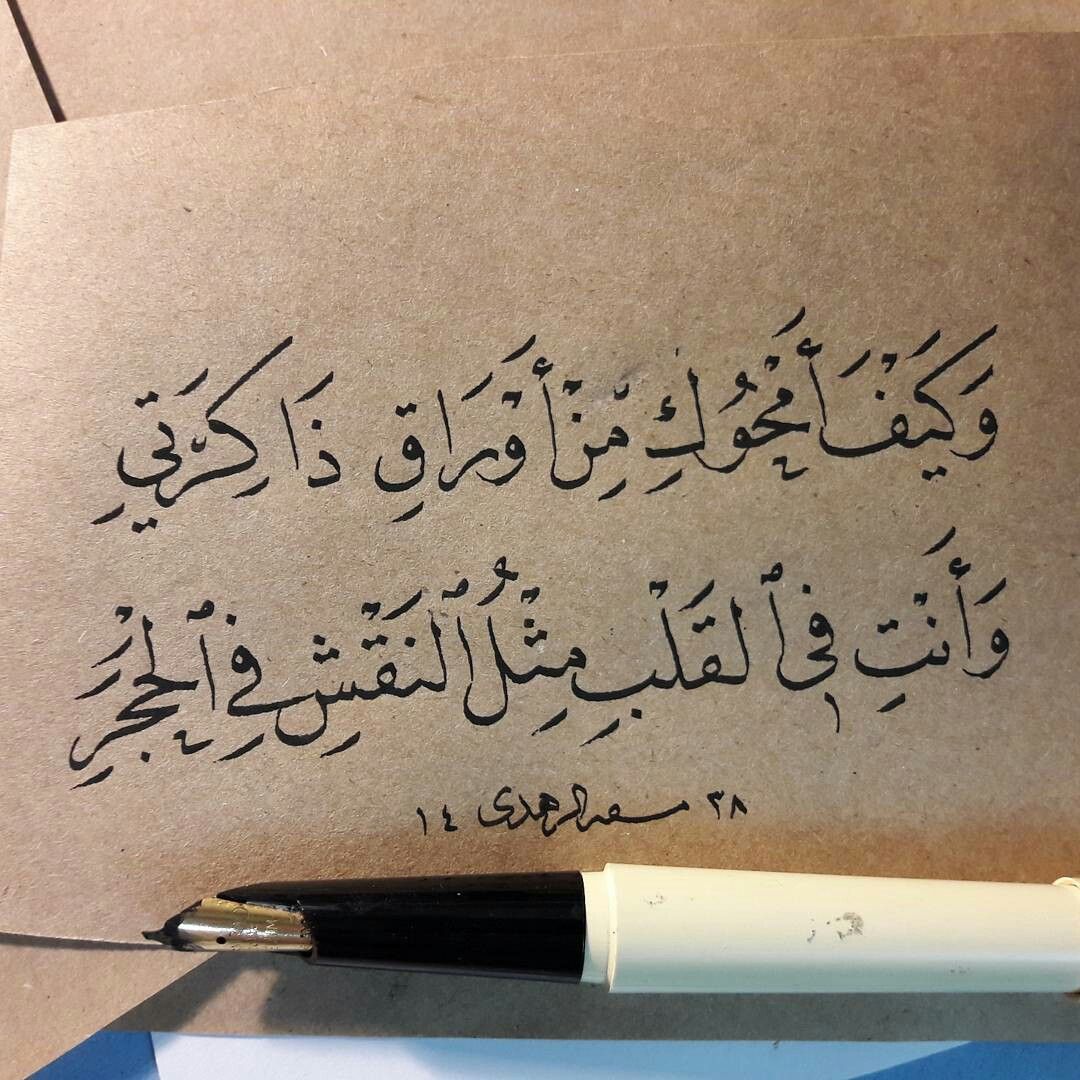 وَكَيْفَ أَمْحُوكِ مِنْ أَوْرَاقِ ذَاكِرَتِي
وَأَنْتِ فِي ٱلْقَلْبِ مِثْلُ ٱلنَّقْشِ فِي ٱلْحَجَرِ
٣٨ ١٤